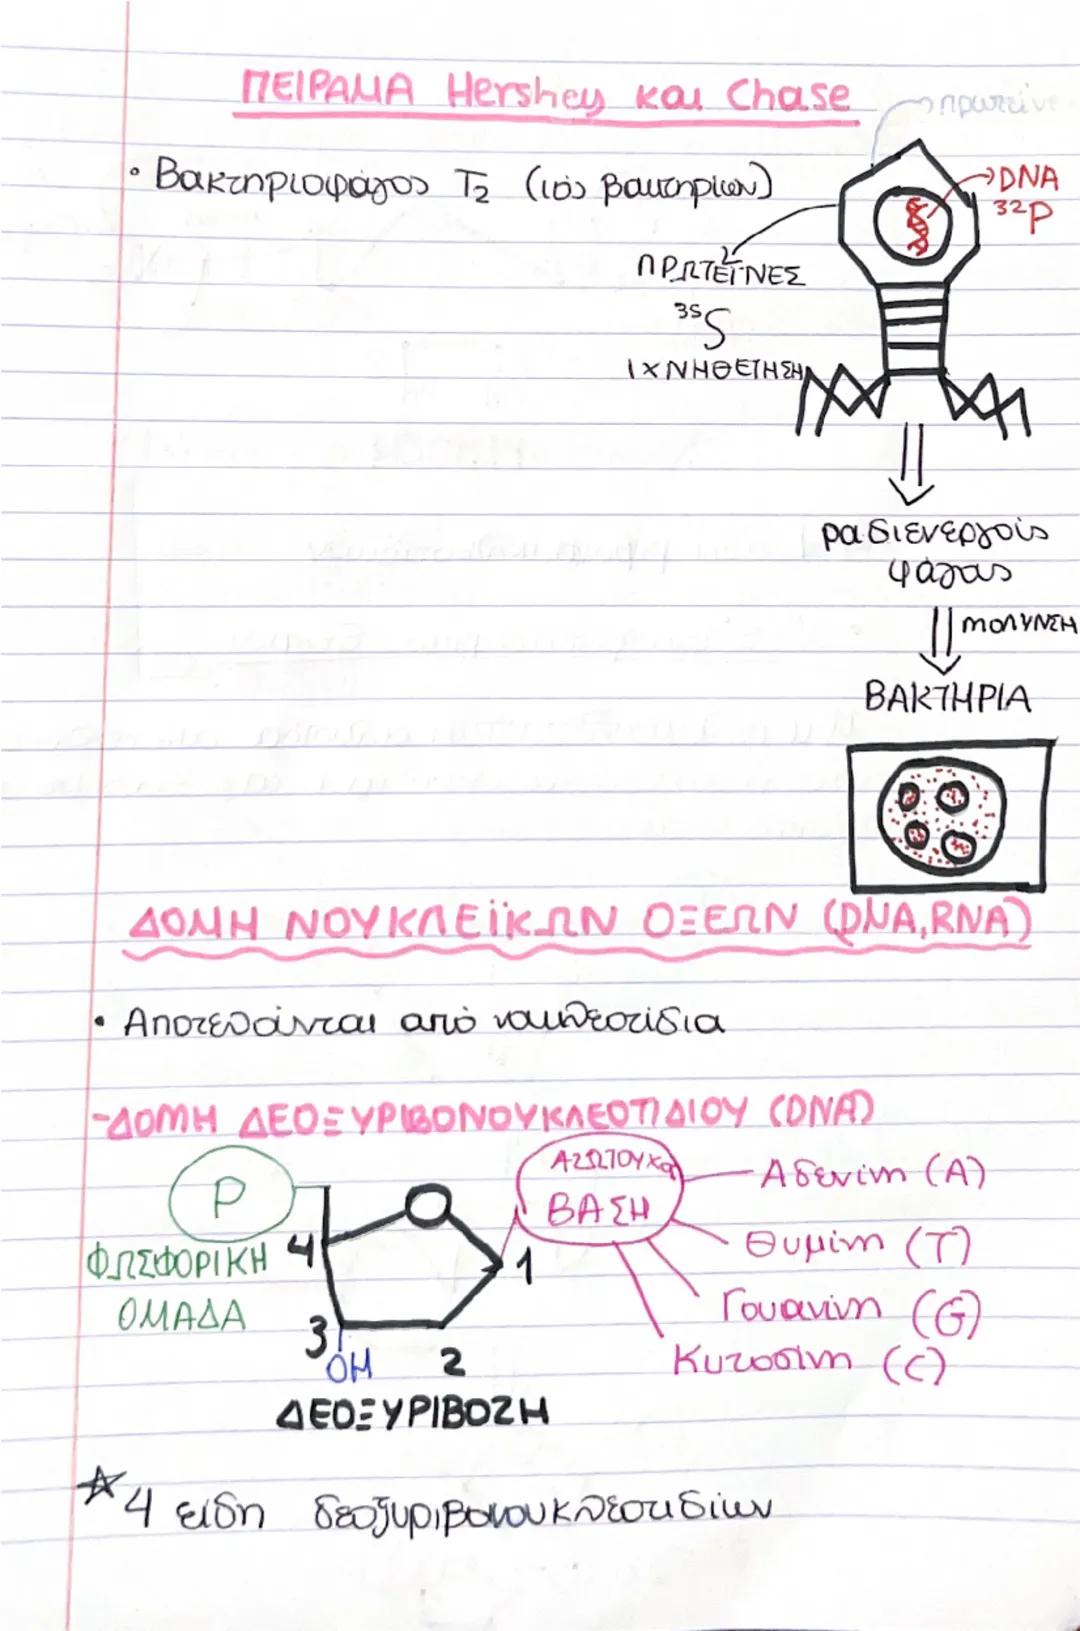 ΠΕΙΡΑΜΑ Hershey και Chase
πρωτεϊνε
• Βακτηριοφάγος T2 (ιός βακτηρίων)
DNA
32P
ΠΡΩΤΕΪΝΕΣ
35S
ΙΧΝΗΘΕΤΗΣΗ
ραδιενεργούς
φάγους
ΜΟΛΥΝΣΗ
ΒΑΚΤΗΡΙΑ
ΔΟΜΗ ΝΟΥΚΛΕΪΚΩΝ ΟΞΕΩΝ (DNA, RNA)
• Αποτελούνται από νουκλεοτίδια
-ΔΟΜΗ ΔΕΟΞΥΡΙΒΟΝΟΥΚΛΕΟΤΙΔΙΟΥ (DNA)
P
ΦΩΣΦΟΡΙΚΗ
ΟΜΑΔΑ
ΑΖΩΤΟΥΧΟΣ
ΒΑΣΗ
Αδενίνη (A)
Θυμίνη (T)
Γουανίνη (G)
Κυτοσίνη (C)
4
1
3
OH
2
ΔΕΟΞΥΡΙΒΟΖΗ
☆ 4 είδη δεοξυριβονουκλεοτιδίων